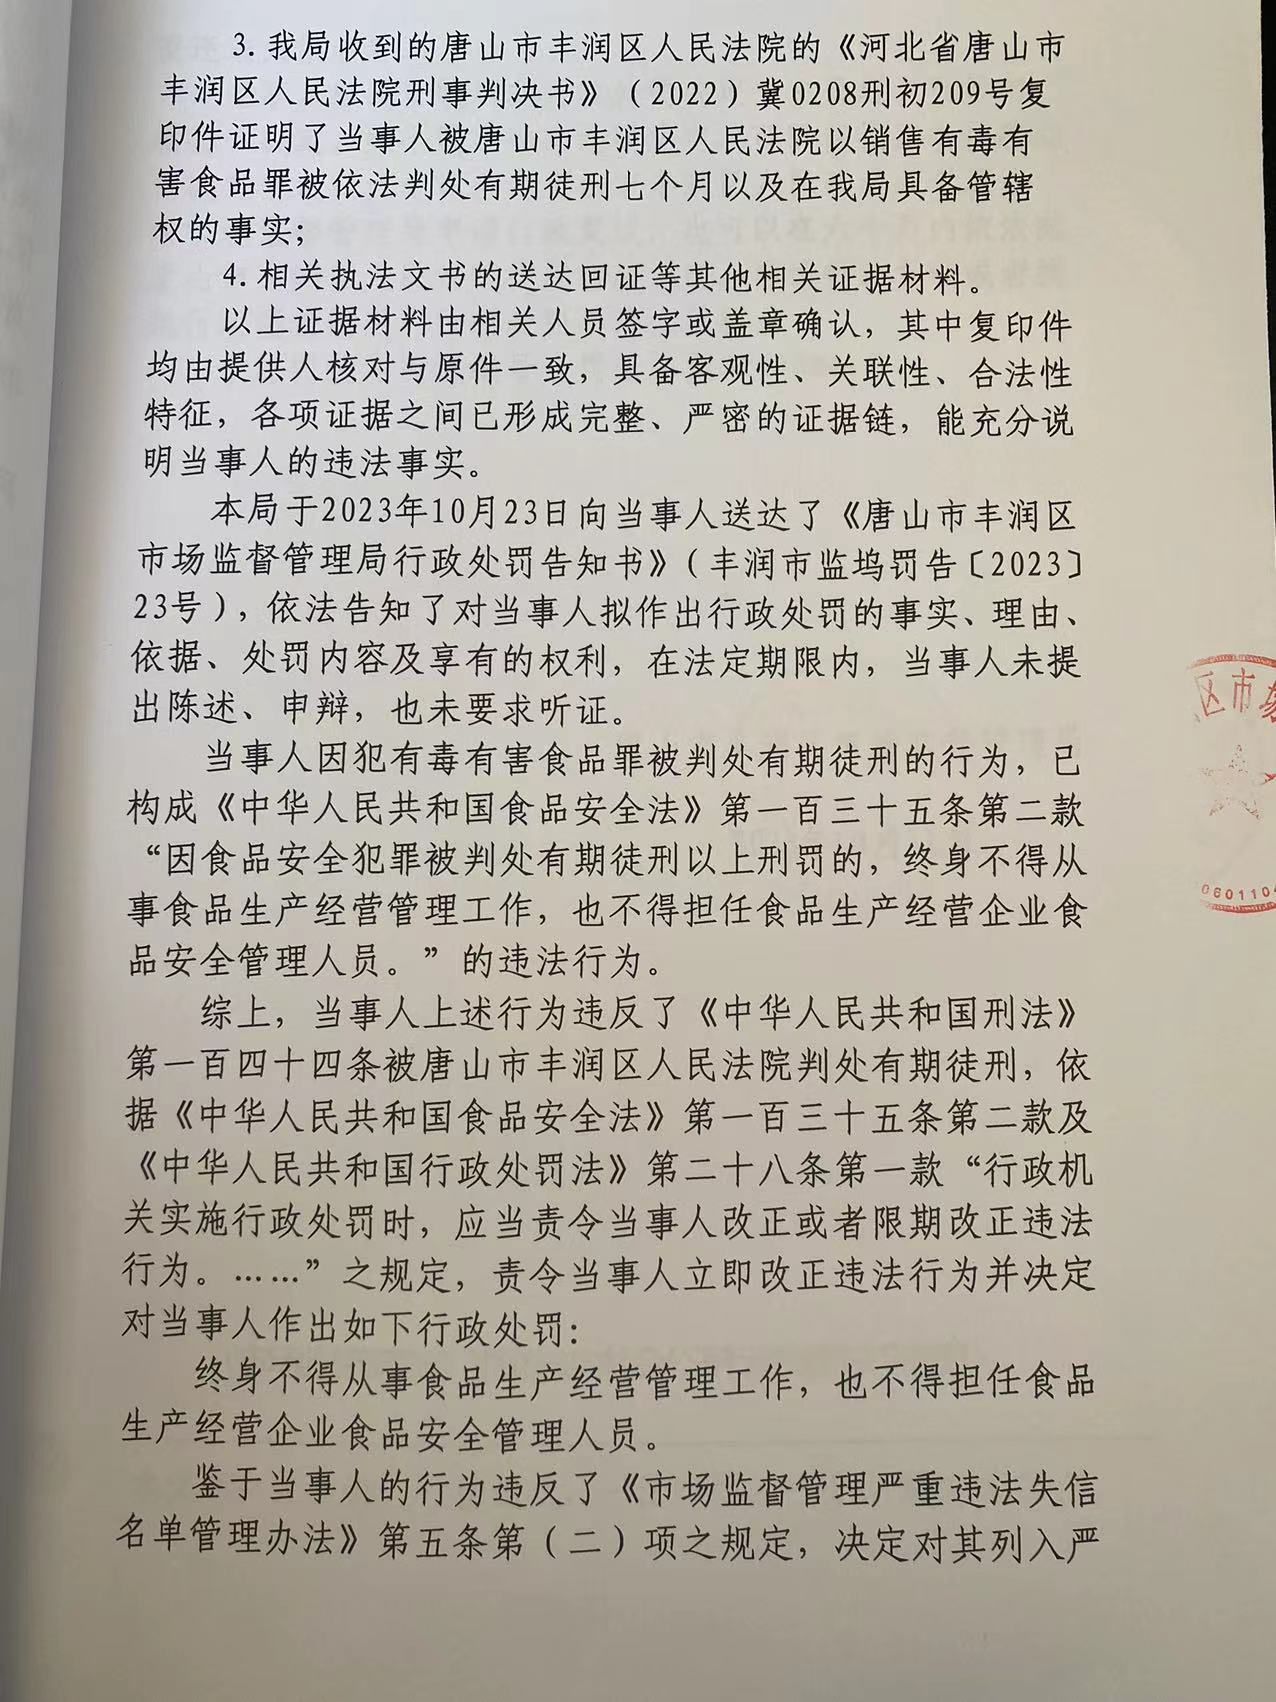 3. 我局收到的唐山市丰润区人民法院的《河北省唐山市
丰润区人民法院刑事判决书》（2022）冀0208刑初209号复
印件证明了当事人被唐山市丰润区人民法院以销售有毒有
害食品罪被依法判处有期徒刑七个月以及在我局具备管辖
权的事实；
4. 相关执法文书的送达回证等其他相关证据材料。
以上证据材料由相关人员签字或盖章确认，其中复印件
均由提供人核对与原件一致，具备客观性、关联性、合法性
特征，各项证据之间已形成完整、严密的证据链，能充分说
明当事人的违法事实。
本局于2023年10月23日向当事人送达了《唐山市丰润区
市场监督管理局行政处罚告知书》（丰润市监坞罚告〔2023〕
23号），依法告知了对当事人拟作出行政处罚的事实、理由、
依据、处罚内容及享有的权利，在法定期限内，当事人未提
出陈述、申辩，也未要求听证。
当事人因犯有毒有害食品罪被判处有期徒刑的行为，已
构成《中华人民共和国食品安全法》第一百三十五条第二款
“因食品安全犯罪被判处有期徒刑以上刑罚的，终身不得从
事食品生产经营管理工作，也不得担任食品生产经营企业食
品安全管理人员。”的违法行为。
综上，当事人上述行为违反了《中华人民共和国刑法》
第一百四十四条被唐山市丰润区人民法院判处有期徒刑，依
据《中华人民共和国食品安全法》第一百三十五条第二款及
《中华人民共和国行政处罚法》第二十八条第一款“行政机
关实施行政处罚时，应当责令当事人改正或者限期改正违法
行为。……”之规定，责令当事人立即改正违法行为并决定
对当事人作出如下行政处罚：
终身不得从事食品生产经营管理工作，也不得担任食品
生产经营企业食品安全管理人员。
鉴于当事人的行为违反了《市场监督管理严重违法失信
名单管理办法》第五条第（二）项之规定，决定对其列入严
区市场
060110